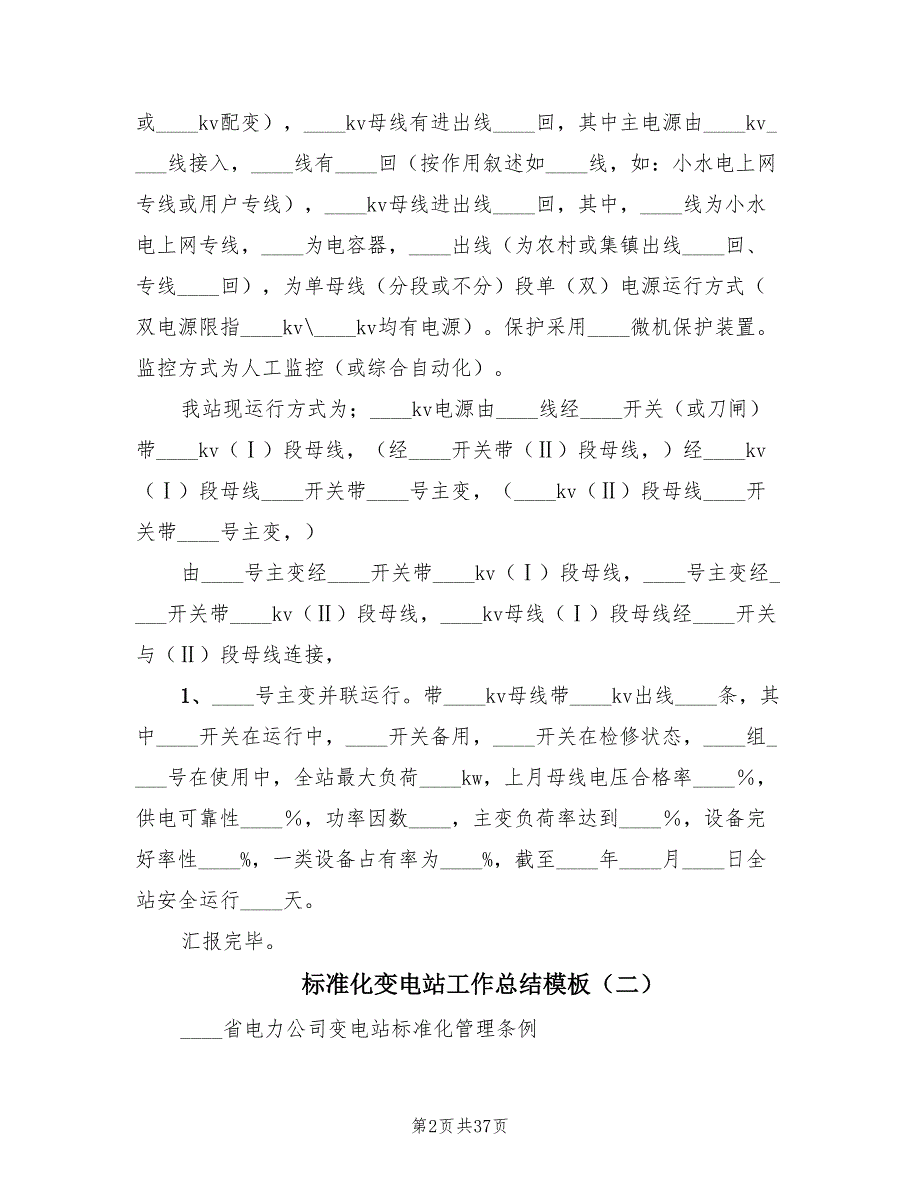 或____kv配变），____kv母线有进出线____回，其中主电源由____kv_
___线接入，____线有____回（按作用叙述如____线，如：小水电上网
专线或用户专线），____kv母线进出线____回，其中，____线为小水
电上网专线，____为电容器，____出线（为农村或集镇出线____回、
专线____回），为单母线（分段或不分）段单（双）电源运行方式（
双电源限指____kv\____kv均有电源）。保护采用____微机保护装置。
监控方式为人工监控（或综合自动化）。
我站现运行方式为；____kv电源由____线经____开关（或刀闸）
带____kv（Ⅰ）段母线，（经____开关带（Ⅱ）段母线，）经____kv
（Ⅰ）段母线____开关带____号主变，（____kv（Ⅱ）段母线____开
关带____号主变，）
由____号主变经____开关带____kv（Ⅰ）段母线，____号主变经_
___开关带____kv（Ⅱ）段母线，____kv母线（Ⅰ）段母线经____开关
与（Ⅱ）段母线连接，
1、____号主变并联运行。带____kv母线带____kv出线____条，其
中____开关在运行中，____开关备用，____开关在检修状态，____组_
___号在使用中，全站最大负荷____kw，上月母线电压合格率____％，
供电可靠性____％，功率因数____，主变负荷率达到____％，设备完
好率性____%，一类设备占有率为____%，截至____年____月____日全
站安全运行____天。
汇报完毕。
标准化变电站工作总结模板（二）
____省电力公司变电站标准化管理条例
第2页共37页